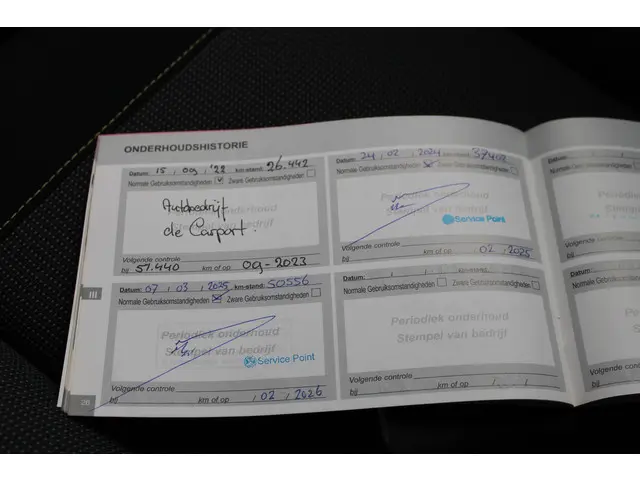 ONDERHOUDSHISTORIE
Datum: 15 , 09 , '22 km-stand: 26.442
Normale Gebruiksomstandigheden Zware Gebruiksomstandigheden
Periodiek onderhoud
Autobedrijf
de Carport.
Volgende controle
bij 51.440 km of op 09-2023
Datum: 24 , 02 , 2024 km-stand: 37402
Normale Gebruiksomstandigheden Zware Gebruiksomstandigheden
Periodiek onderhoud
Stempel van bedrijf
Service Point
Volgende controle
bij km of op 02 , 2025
III
Datum: 07 , 03 , 2025 km-stand: 50556
Normale Gebruiksomstandigheden Zware Gebruiksomstandigheden
Periodiek onderhoud
Stempel van bedrijf
Service Point
Volgende controle
bij km of op , 02 , 2026
Datum: km-stand:
Normale Gebruiksomstandigheden Zware Gebruiksomstandigheden
Periodiek onderhoud
Stempel van bedrijf
Volgende controle
bij km of op
Datum:
Normale Gebruik
Volgende controle
bij
Datum:
Normale Gebruik
Volgende controle
bij